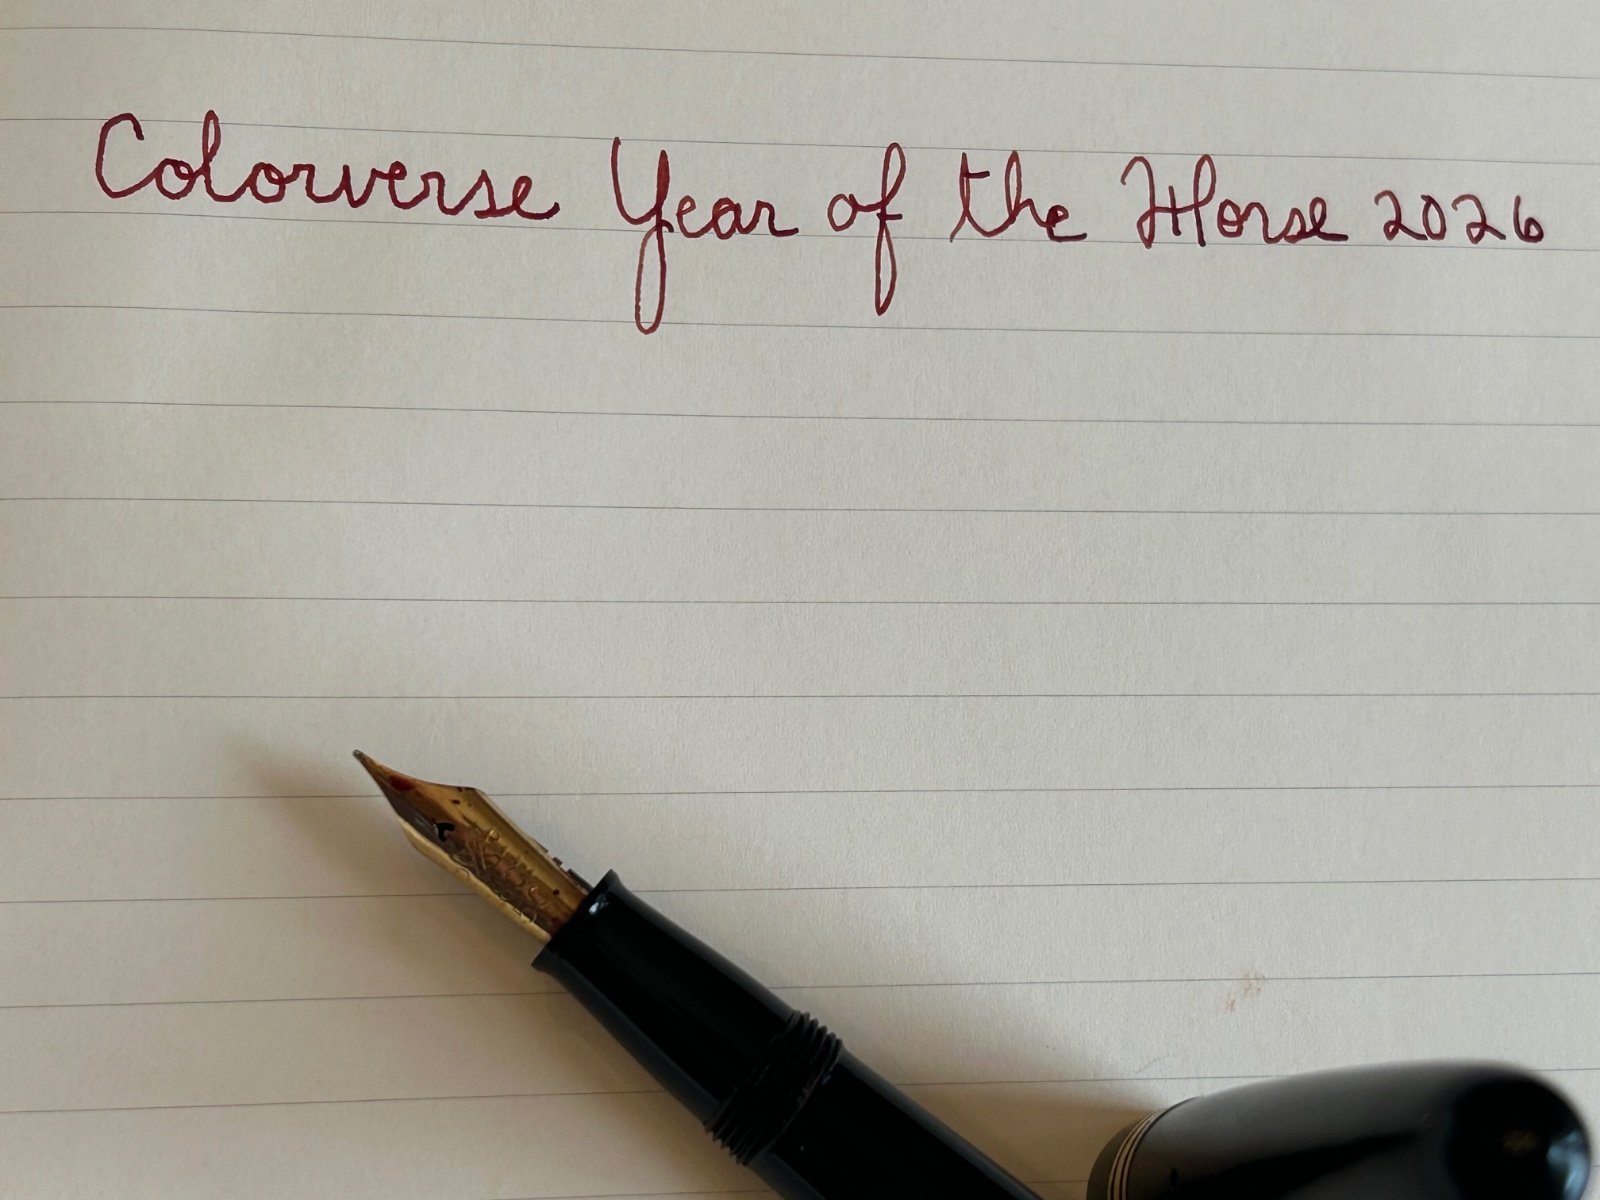 Colorverse Year of the Horse 2026